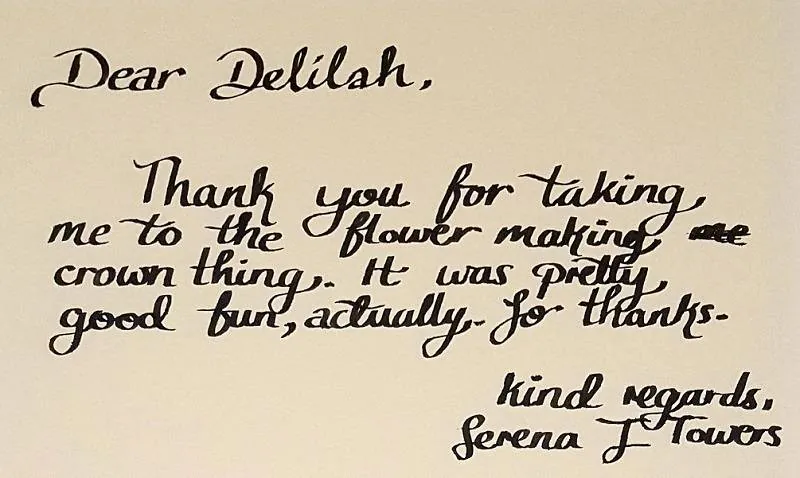 Dear Delilah,
Thank you for taking
me to the flower making
crown thing. It was pretty
good fun, actually. So thanks.
Kind regards,
Serena J Towers